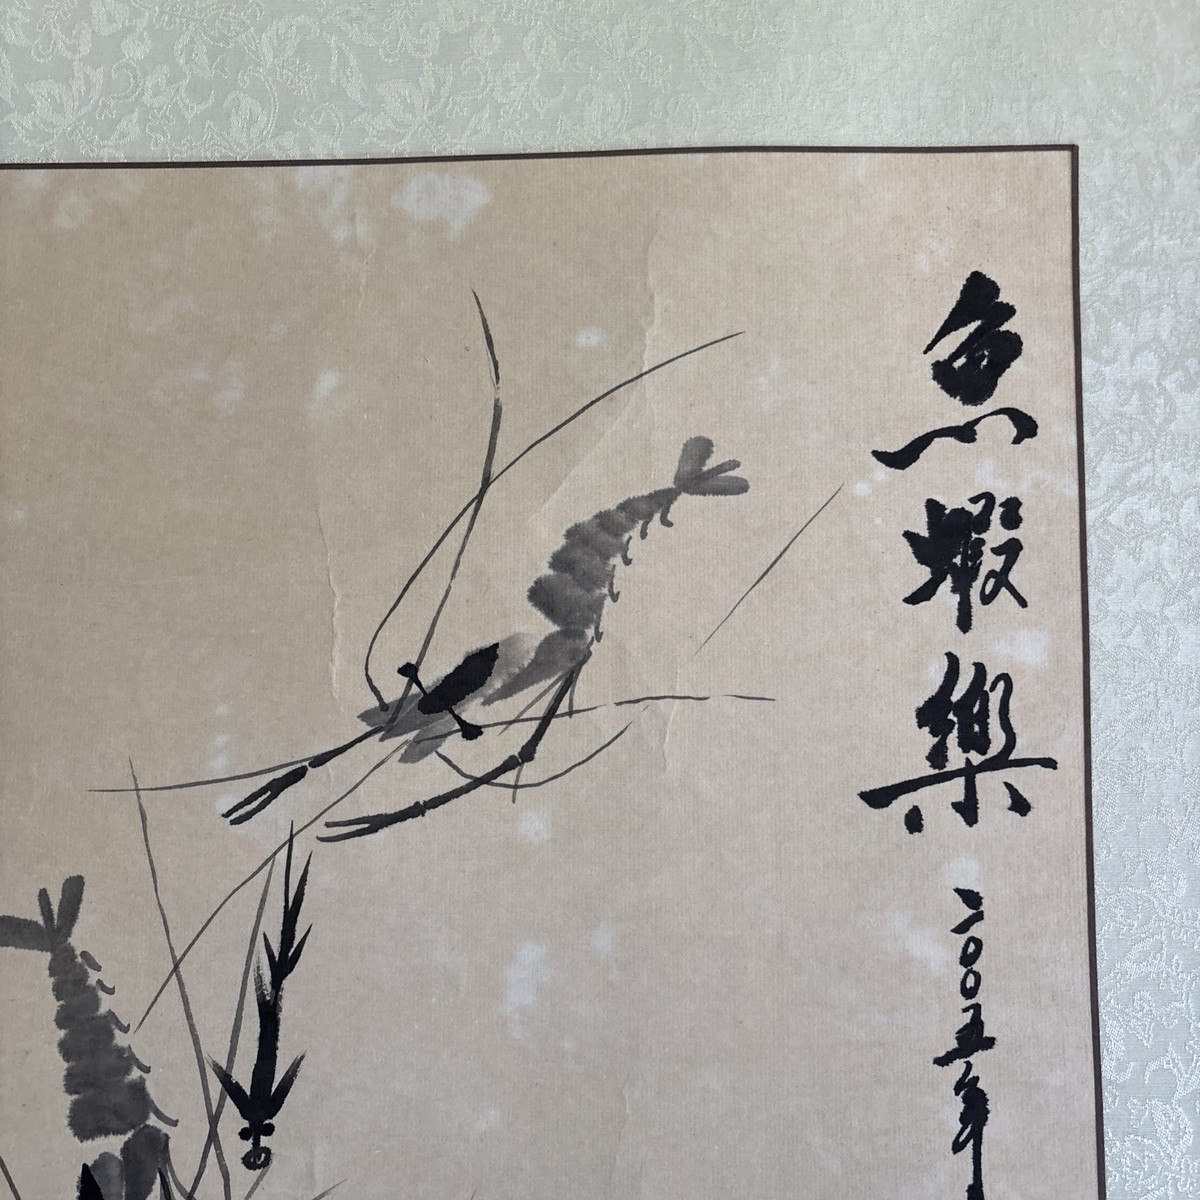 魚蝦樂
二〇〇五年